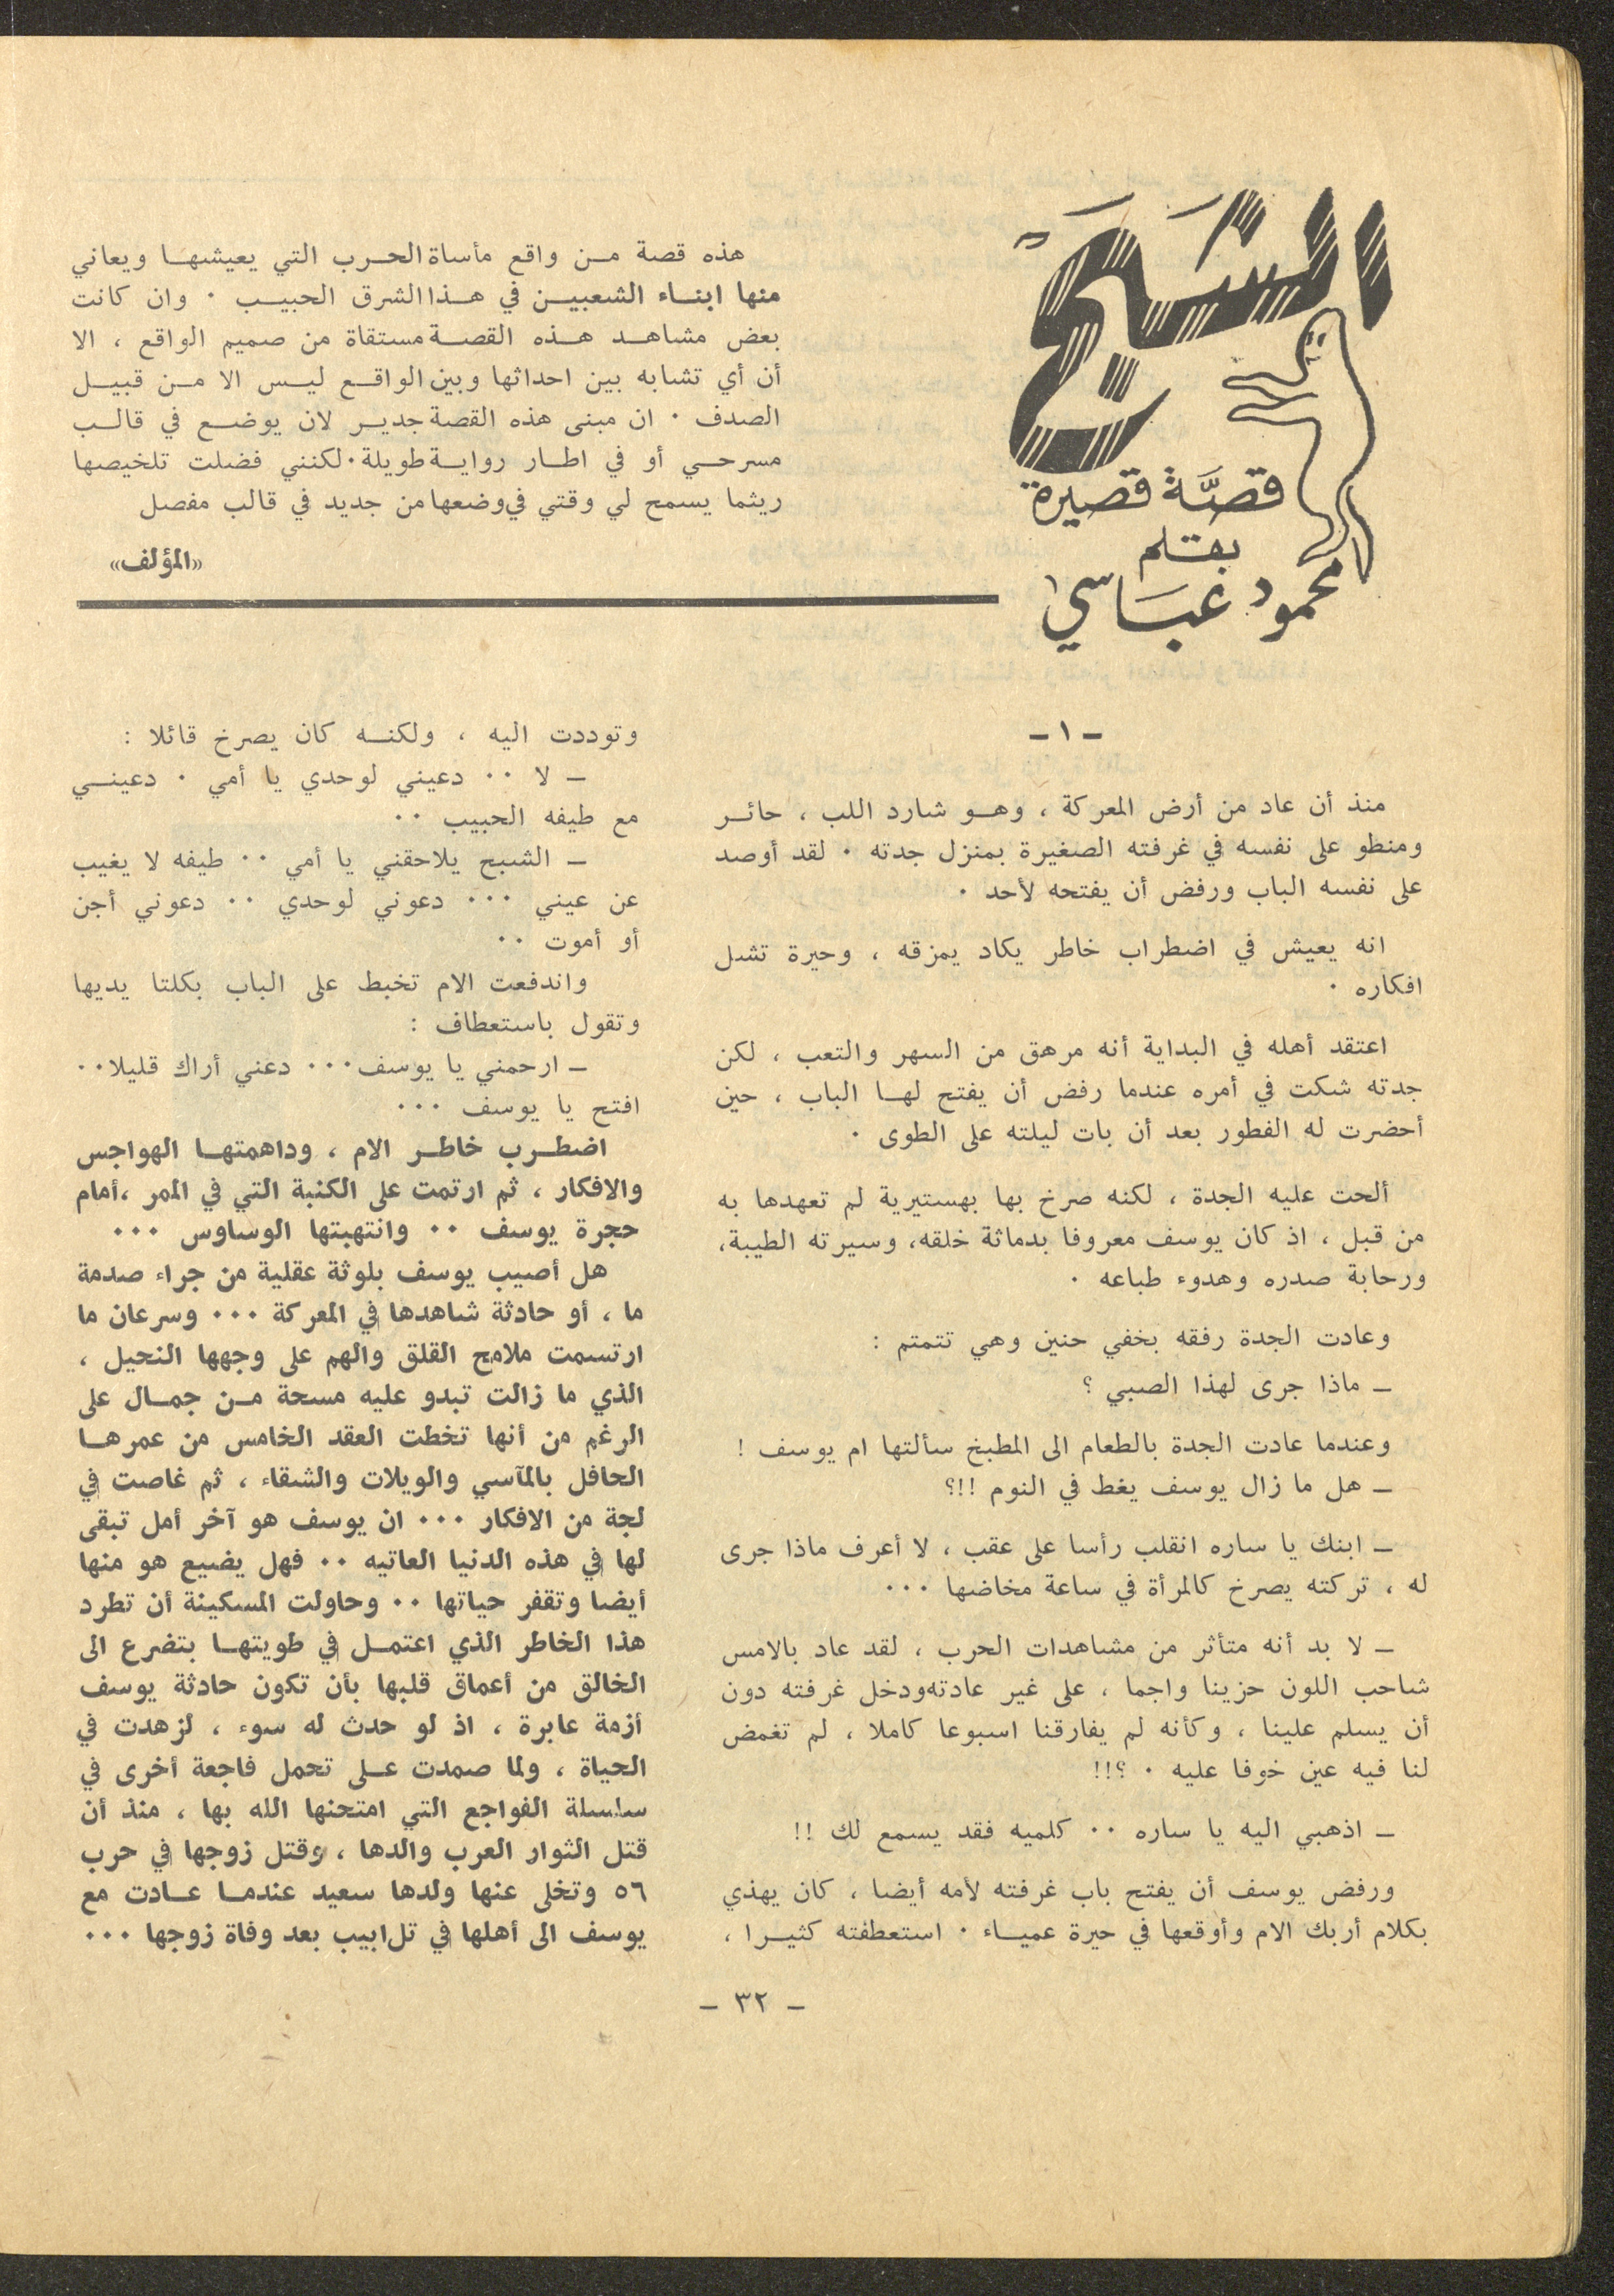 الشبح
قصة قصيرة
بقلم
محمود عباسي
هذه قصة من واقع مأساة الحرب التي يعيشها ويعاني
منها ابناء الشعبين في هذا الشرق الحبيب . وان كانت
بعض مشاهد هذه القصة مستقاة من صميم الواقع ، الا
أن أي تشابه بين احداثها وبين الواقع ليس الا من قبيل
الصدف . ان مبنى هذه القصة جدير لان يوضع في قالب
مسرحي أو في اطار رواية طويلة . لكنني فضلت تلخيصها
ريثما يسمح لي وقتي في وضعها من جديد في قالب مفصل
«المؤلف»
- ١ -
منذ أن عاد من أرض المعركة ، وهو شارد اللب ، حائر
ومنطو على نفسه في غرفته الصغيرة بمنزل جدته . لقد أوصد
على نفسه الباب ورفض أن يفتحه لأحد .
انه يعيش في اضطراب خاطر يكاد يمزقه ، وحيرة تشل
افكاره .
اعتقد أهله في البداية أنه مرهق من السهر والتعب ، لكن
جدته شكت في أمره عندما رفض أن يفتح لها الباب ، حين
أحضرت له الفطور بعد أن بات ليلته على الطوى .
ألحت عليه الجدة ، لكنه صرخ بها بهستيرية لم تعهدها به
من قبل ، اذ كان يوسف معروفا بدماثة خلقه، وسيرته الطيبة،
ورحابة صدره وهدوء طباعه .
وعادت الجدة رفقه بخفي حنين وهي تتمتم :
- ماذا جرى لهذا الصبي ؟
وعندما عادت الجدة بالطعام الى المطبخ سألتها ام يوسف !
- هل ما زال يوسف يغط في النوم !!؟
- ابنك يا ساره انقلب رأسا على عقب ، لا أعرف ماذا جرى
له ، تركته يصرخ كالمرأة في ساعة مخاضها ...
- لا بد أنه متأثر من مشاهدات الحرب ، لقد عاد بالامس
شاحب اللون حزينا واجما ، على غير عادته ودخل غرفته دون
أن يسلم علينا ، وكأنه لم يفارقنا اسبوعا كاملا ، لم تغمض
لنا فيه عين خوفا عليه . ؟!!
- اذهبي اليه يا ساره .. كلميه فقد يسمع لك !!
ورفض يوسف أن يفتح باب غرفته لأمه أيضا ، كان يهذي
بكلام أربك الام وأوقعها في حيرة عمياء . استعطفته كثيرا ،
وتوددت اليه ، ولكنه كان يصرخ قائلا :
- لا .. دعيني لوحدي يا أمي . دعيني
مع طيفه الحبيب ..
- الشبح يلاحقني يا أمي .. طيفه لا يغيب
عن عيني ... دعوني لوحدي .. دعوني أجن
أو أموت ..
واندفعت الام تخبط على الباب بكلتا يديها
وتقول باستعطاف :
- ارحمني يا يوسف... دعني أراك قليلا..
افتح يا يوسف ...
اضطرب خاطر الام ، وداهمتها الهواجس
والافكار ، ثم ارتمت على الكنبة التي في الممر ،أمام
حجرة يوسف .. وانتهبتها الوساوس ...
هل أصيب يوسف بلوثة عقلية من جراء صدمة
ما ، أو حادثة شاهدها في المعركة ... وسرعان ما
ارتسمت ملامح القلق والهم على وجهها النحيل ،
الذي ما زالت تبدو عليه مسحة من جمال على
الرغم من أنها تخطت العقد الخامس من عمرها
الحافل بالمآسي والويلات والشقاء ، ثم غاصت في
لجة من الافكار ... ان يوسف هو آخر أمل تبقى
لها في هذه الدنيا العاتيه .. فهل يضيع هو منها
أيضا وتقفر حياتها .. وحاولت المسكينة أن تطرد
هذا الخاطر الذي اعتمل في طويتها بتضرع الى
الخالق من أعماق قلبها بأن تكون حادثة يوسف
أزمة عابرة ، اذ لو حدث له سوء ، لزهدت في
الحياة ، ولما صمدت على تحمل فاجعة أخرى في
سلسلة الفواجع التي امتحنها الله بها ، منذ أن
قتل الثوار العرب والدها ، وقتل زوجها في حرب
٥٦ وتخلى عنها ولدها سعيد عندما عادت مع
يوسف الى أهلها في تل ابيب بعد وفاة زوجها ...
- ٣٢ -